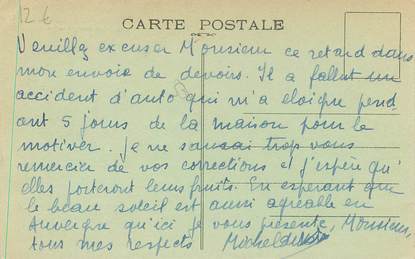 12 €
CARTE POSTALE
Veuillez excuser Monsieur ce retard dans
mon envoie de devoirs. Il a fallut un
accident d'auto qui m'a eloigné pend
ant 5 jours de la maison pour le
motiver. Je ne saurai trop vous
remercier de vos corrections et j'espère qu'
elles porteront leurs fruits. En esperant que
le beau soleil est aussi agréable en
Auvergne qu'ici je vous présente, Monsieur,
tous mes respects